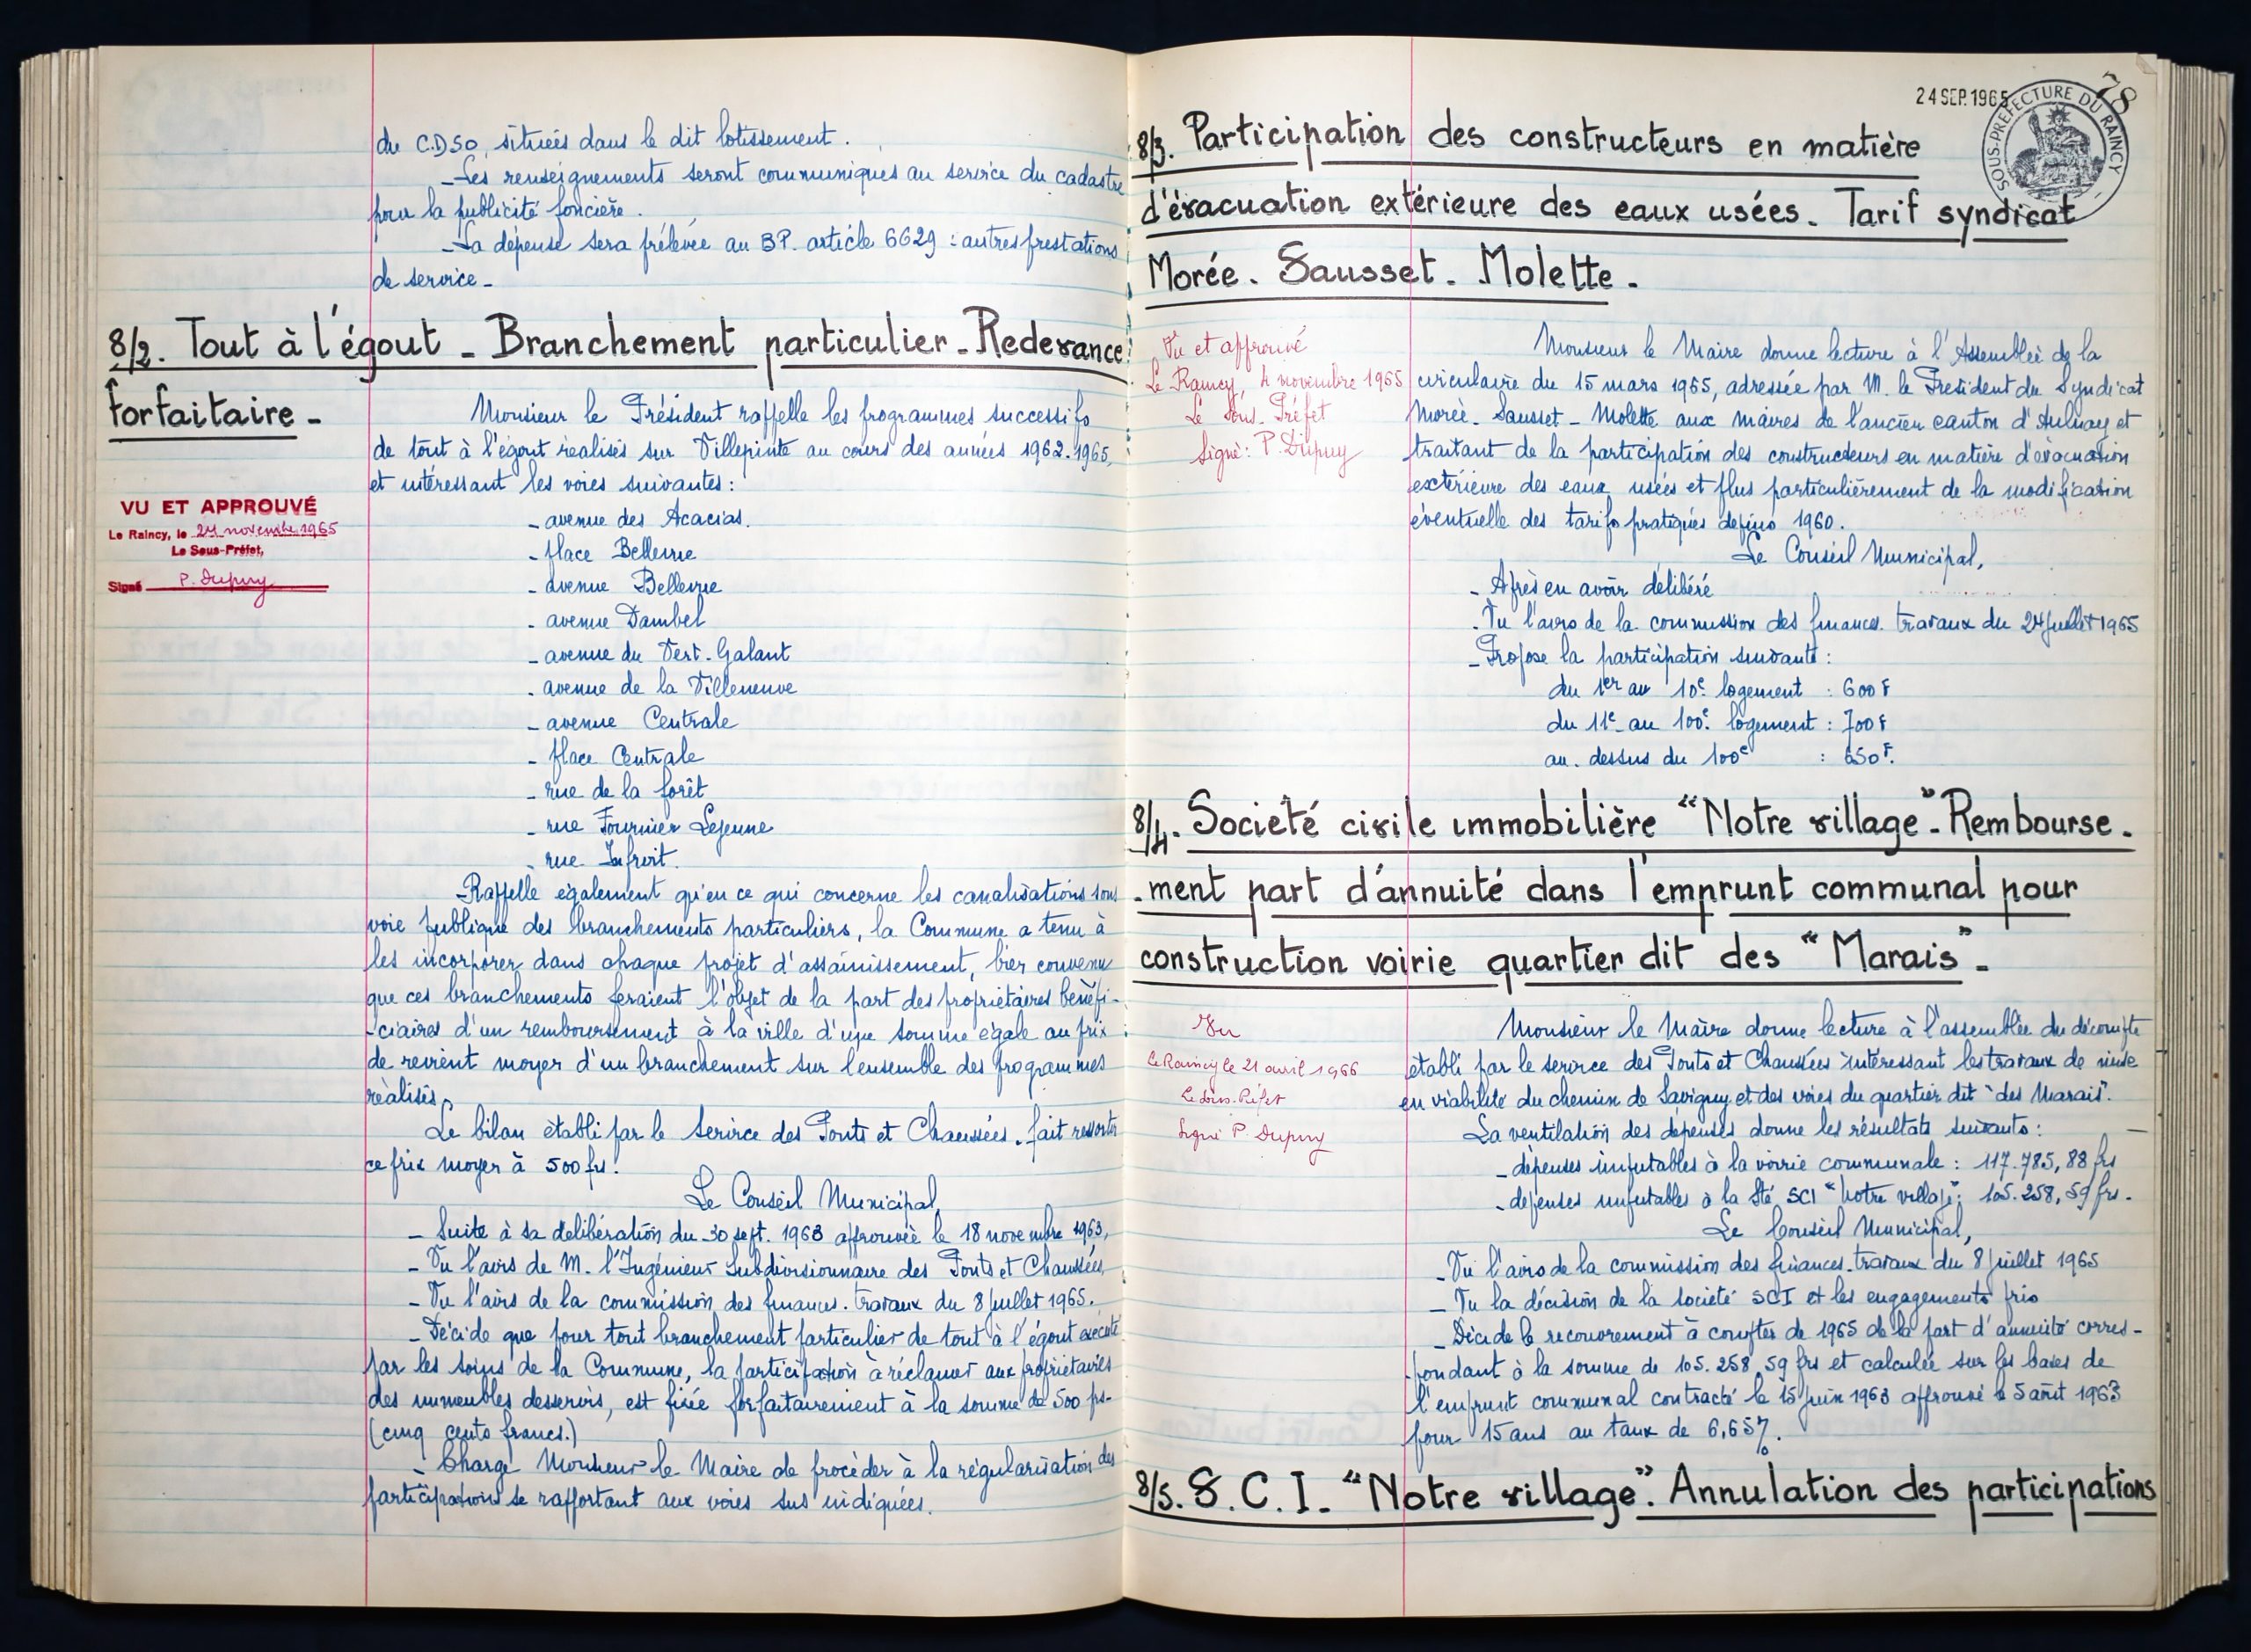 du C.D 50, situées dans le dit lotissement.
_ Les renseignements seront communiqués au service du cadastre
pour la publicité foncière.
_ La dépense sera prélevée au B.P. article 6629 : autres prestations
de service _
8/2. Tout à l'égout _ Branchement particulier _ Redevance
forfaitaire _
Monsieur le Président rappelle les programmes successifs
de tout à l'égout réalisés sur Villepinte au cours des années 1962.1965,
et intéressant les voies suivantes :
VU ET APPROUVÉ
Le Raincy, le 24 novembre 1965
Le Sous-Préfet,
Signé P. Dupuy
_ avenue des Acacias.
_ place Bellevue
_ avenue Bellevue
. avenue Dambel
_ avenue du Vert-Galant
. avenue de la Villeneuve
_ avenue Centrale
_ place Centrale
_ rue de la forêt
_ rue Fournier Lejeune
_ rue
_ Rappelle également qu'en ce qui concerne les canalisations sous
voie publique des branchements particuliers, la Commune a tenu à
les incorporer dans chaque projet d'assainissement, bien convenu
que ces branchements feraient l'objet de la part des propriétaires bénéfi-
-ciaires d'un remboursement à la ville d'une somme égale au prix
de revient moyen d'un branchement sur l'ensemble des programmes
réalisés.
Le bilan établi par le Service des Ponts et Chaussées, fait ressortir
ce prix moyen à 500 frs.
Le Conseil Municipal,
_ Suite à sa délibération du 30 sept. 1963 approuvée le 18 novembre 1963,
_ Vu l'avis de M. l'Ingénieur Subdivisionnaire des Ponts et Chaussées,
_ Vu l'avis de la commission des finances. travaux du 8 juillet 1965.
_ Décide que pour tout branchement particulier de tout à l'égout exécuté
par les soins de la Commune, la participation à réclamer aux propriétaires
des immeubles desservis, est fixée forfaitairement à la somme de 500 frs-
(cinq cents francs.)
_ Charge Monsieur le Maire de procéder à la régularisation des
participations se rapportant aux voies sus indiquées.
24 SEP. 1965
SOUS-PREFECTURE DU RAINCY
78
8/3. Participation des constructeurs en matière
d'évacuation extérieure des eaux usées. Tarif syndicat
Morée. Sausset. Molette.
Vu et approuvé
Le Raincy, 4 novembre 1965
Le Sous-Préfet
Signé : P. Dupuy
Monsieur le Maire donne lecture à l'Assemblée de la
circulaire du 15 mars 1965, adressée par M. le Président du Syndicat
Morée. Sausset _ Molette aux maires de l'ancien canton d'Aulnay et
traitant de la participation des constructeurs en matière d'évacuation
extérieure des eaux usées et plus particulièrement de la modification
éventuelle des tarifs pratiqués depuis 1960.
Le Conseil Municipal,
_ Après en avoir délibéré
_ Vu l'avis de la commission des finances. travaux du 24 juillet 1965
_ Propose la participation suivante :
du 1er au 10e logement : 600 F
du 11e au 100e logement : 700 F
au. dessus du 100e : 650 F.
8/4. Société civile immobilière "Notre village" - Rembourse.
-ment part d'annuité dans l'emprunt communal pour
construction voirie quartier dit des "Marais" -
Vu
Le Raincy le 21 avril 1966
Le Sous-Préfet
Signé P. Dupuy
Monsieur le Maire donne lecture à l'assemblée du décompte
établi par le service des Ponts et Chaussées intéressant les travaux de mise
en viabilité du chemin de Savigny et des voies du quartier dit "des Marais".
La ventilation des dépenses donne les résultats suivants :
_ dépenses imputables à la voirie communale : 117.785,88 frs
_ dépenses imputables à la Sté SCI "Notre village" : 105.258,59 frs.
Le Conseil Municipal,
_ Vu l'avis de la commission des finances. travaux du 8 juillet 1965
_ Vu la décision de la société SCI et les engagements pris
_ Décide le recouvrement à compter de 1965 de la part d'annuité corres-
-pondant à la somme de 105.258,59 frs et calculée sur les bases de
l'emprunt communal contracté le 15 juin 1963 approuvé le 5 août 1963
pour 15 ans au taux de 6,65%.
8/5. S.C.I. "Notre village". Annulation des participations